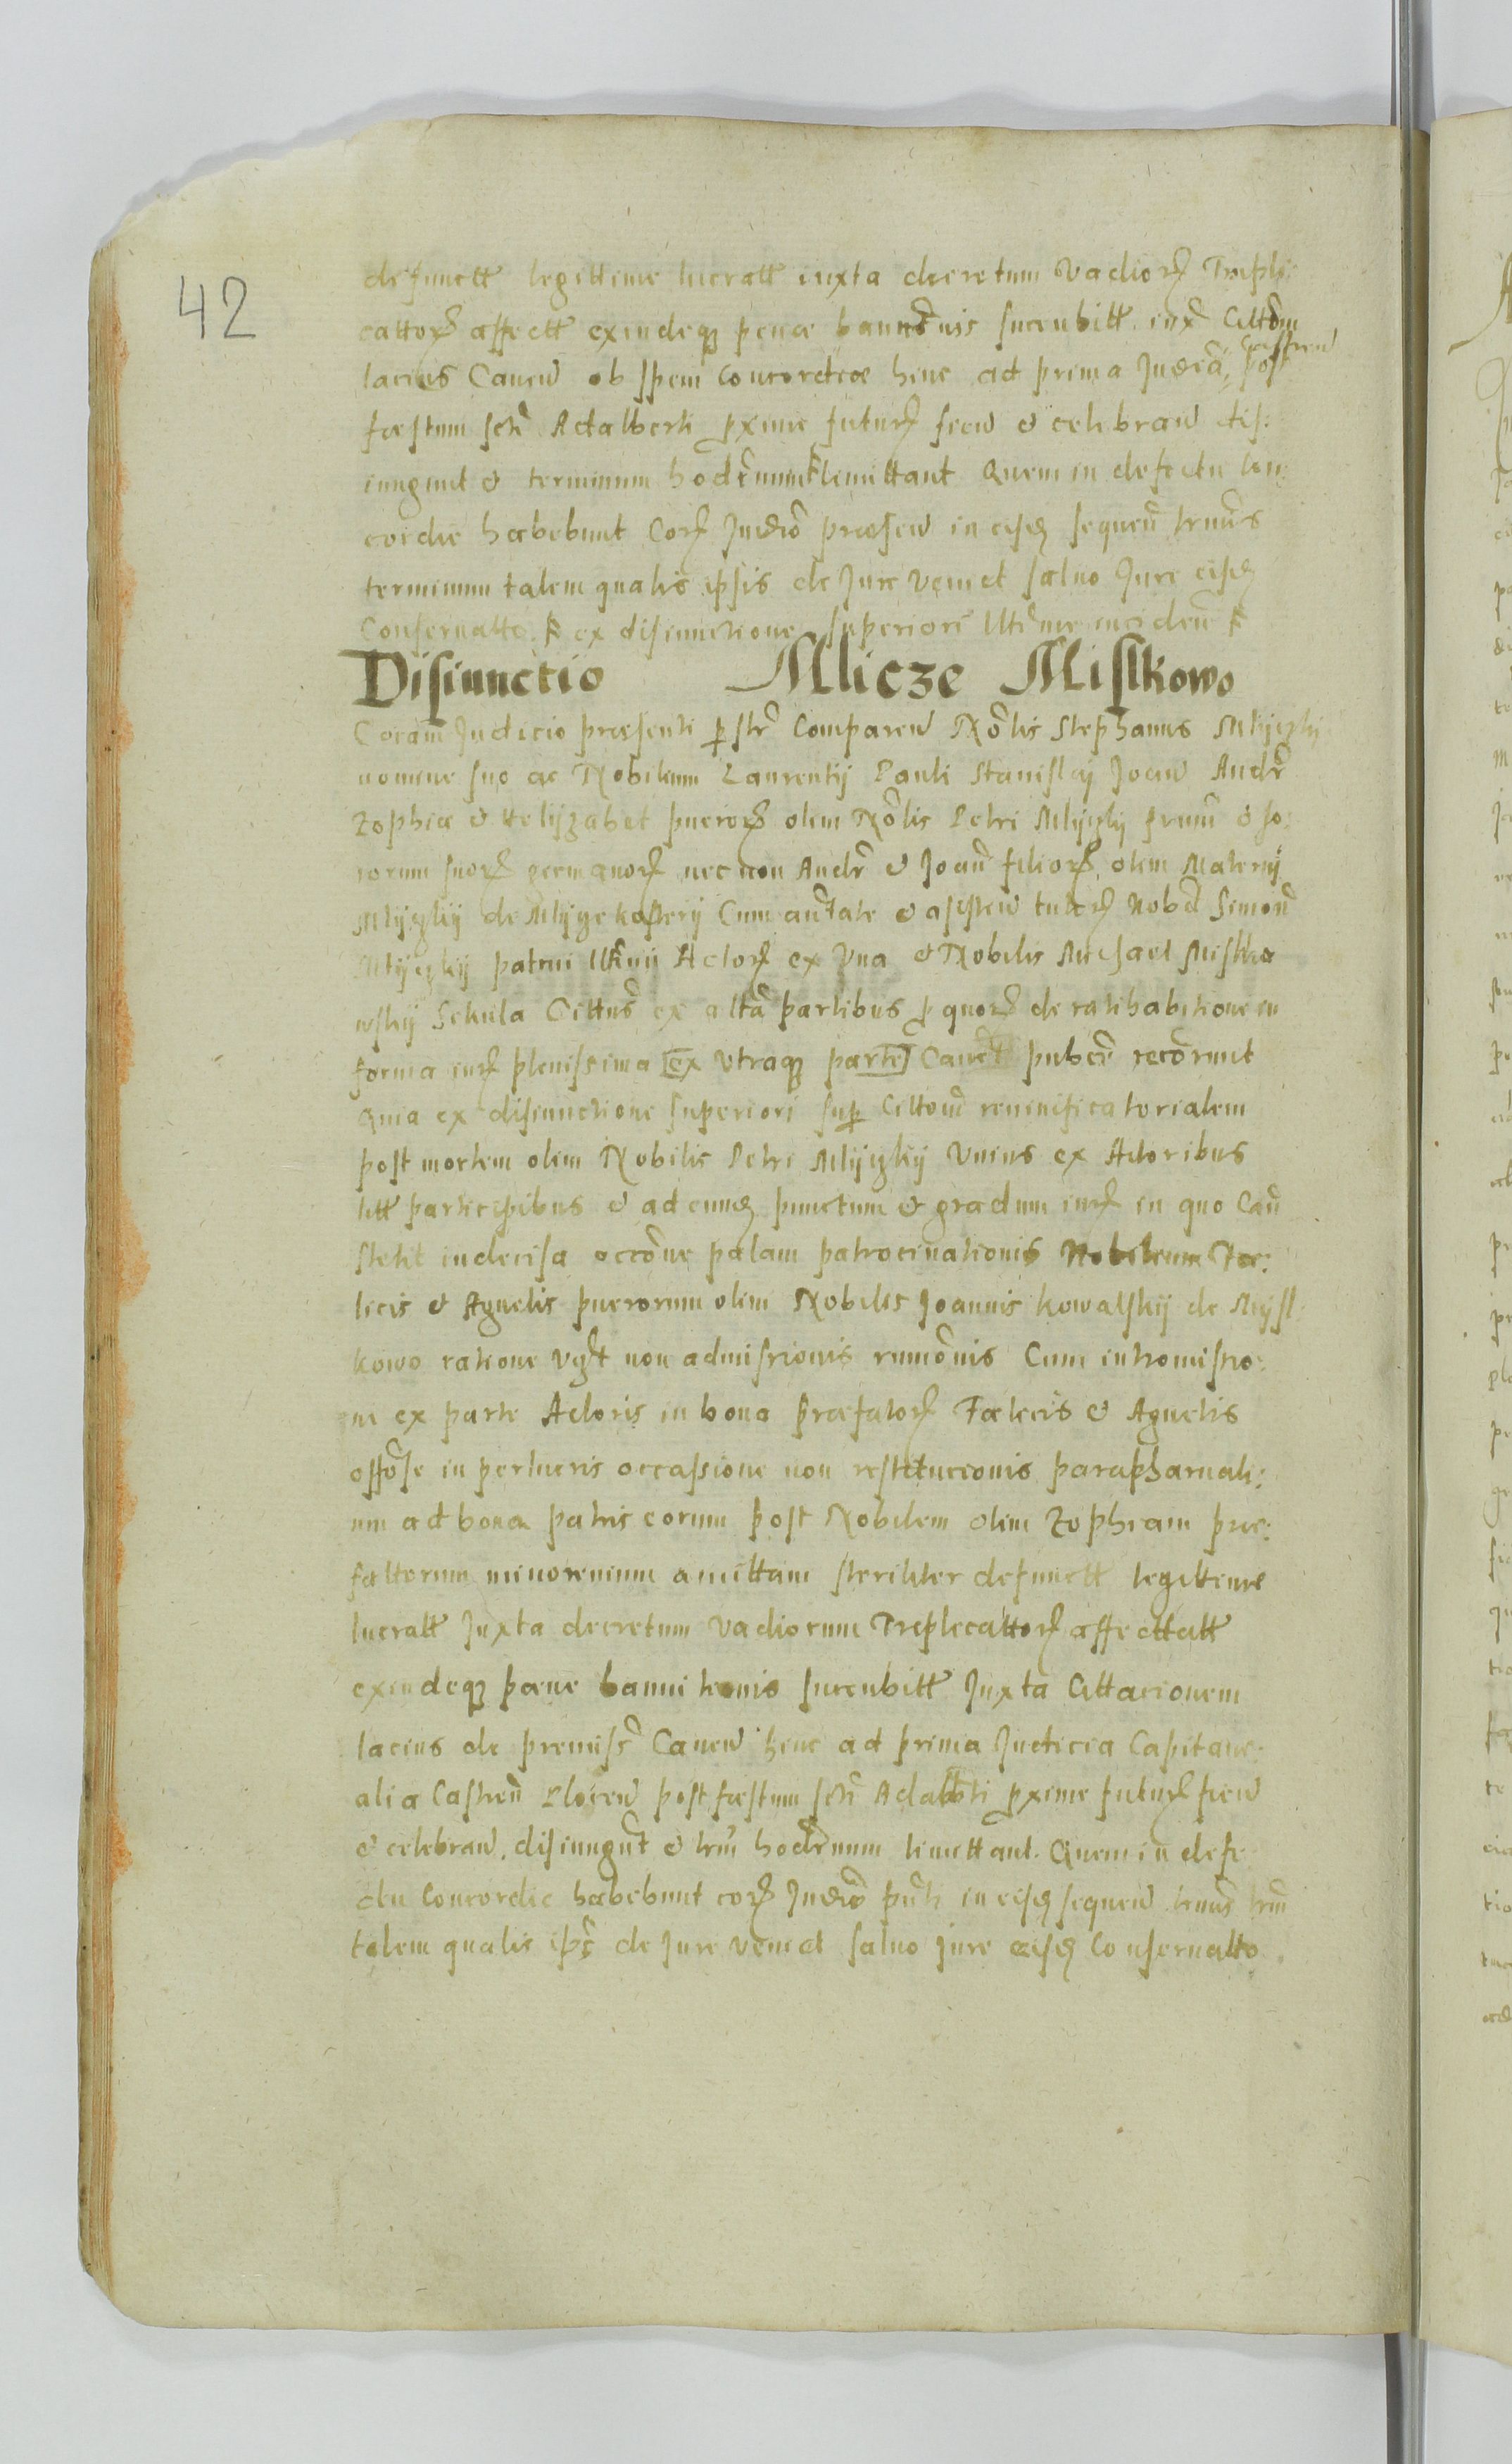 42
defunctt legittime lucratt iuxta decretum vadior Tripli:
cattor affectt exindeq penæ bannōnis sucubitt iux Cittōm
lacius Canen ob spem concordiæ hinc ad prima Judiā castren post
fæstum scti Adalberti pxime futur fien & celebran dis:
iungunt & terminum hodiernum limittant Quem in defectu con:
cordiæ habebunt Cor Judio præsen in eisd sequen trmis
terminum talem qualis ipsis de Jure veniet saluo Jure eisd
Conseruatto ex disiunctione superiori
Disiunctio Mlicze Mislkowo
Coram Judicio præsenti p str Comparen Nōlis Stephanus Mlijczkij
nomine suo ac Nobilium Laurentij Pauli Stanislaj Joan Andr
Zophiæ & Helijzabet pueror olim Nōlis Petri Mlijczkij frum & so:
rorum suor germanor nec non Andr & Joan filior olim Materny
Mlijczkij de Mlijcze kosterij Cum autate & assisten tutor Nobil Simon
Mlijczkij patrui Actor ex Vna & Nobilis Michael Mislko
wskij Sekula Cittus ex alta partibus p quor de ratihabitione in
forma iur plenissima [ex vtraq parte] Cauet pubce recōrunt
Quia ex disiunctione superiori sup Cittom reuinificatorialem
post mortem olim Nobilis Petri Mlijczkij Vnius ex Actoribus
litt participibus & ad eund punctum & gradum iur in quo Cau
stetit indecisa occōne palam patrocinationis Nobilium Fæ:
licis & Agnetis puerorum olim Nobilis Joannis Kowalskij de Mijsl
kowo ratione vgt non admissionis rumōnis Cum intromissio:
ne ex parte Actoris in bona præfator Fælicis & Agnetis
offōse in perlucris occassione non restitucionis parapharnali:
um ad bona patris eorum post Nobilem olim Zophiam præ:
fattorum minorenium amittam steriliter defunctt legittime
lucratt Juxta decretum vadiorum Triplicattor affecttatt
exindeq pæne bannitionis sucubitt Juxta Cittacionem
lacius de premiss Canen hinc ad prima Judicia Capitane:
alia Castren Plocen post fæstum scti Adalbti pxime futur fien
& celebran disiungut & trm hodiernum limittant. Quem in defe
ctu Concordiæ habebunt cor Judio pnti in eisd sequen trmis trm
talem qualis ips de Jure veniet saluo jure eisd Conseruatto